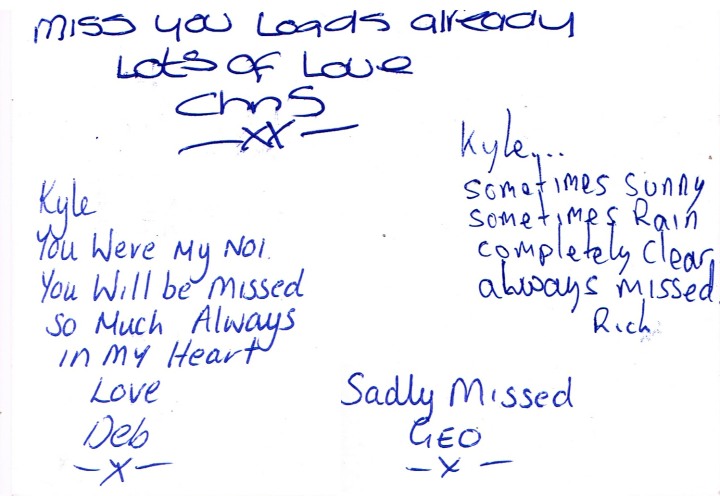 miss you Loads already
Lots of Love
Chris
—xx—
Kyle
You Were My NO1.
You Will be Missed
so Much Always
in My Heart
Love
Deb
—x—
Kyle...
sometimes sunny
sometimes Rain
completely clear,
always missed.
Rich
Sadly Missed
GEO
—x—